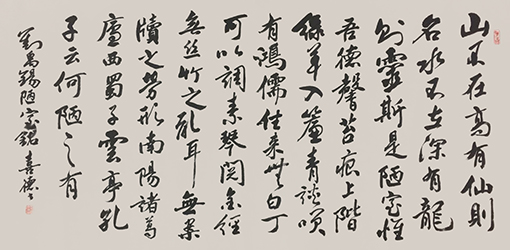 山不在高有仙則
名水不在深有龍
則靈斯是陋室惟
吾德馨苔痕上階
綠草入簾青談笑
有鴻儒往來無白丁
可以調素琴閱金經
無絲竹之亂耳無案
牘之勞形南陽諸葛
廬西蜀子雲亭孔
子云何陋之有
劉禹錫陋室銘 喜德書